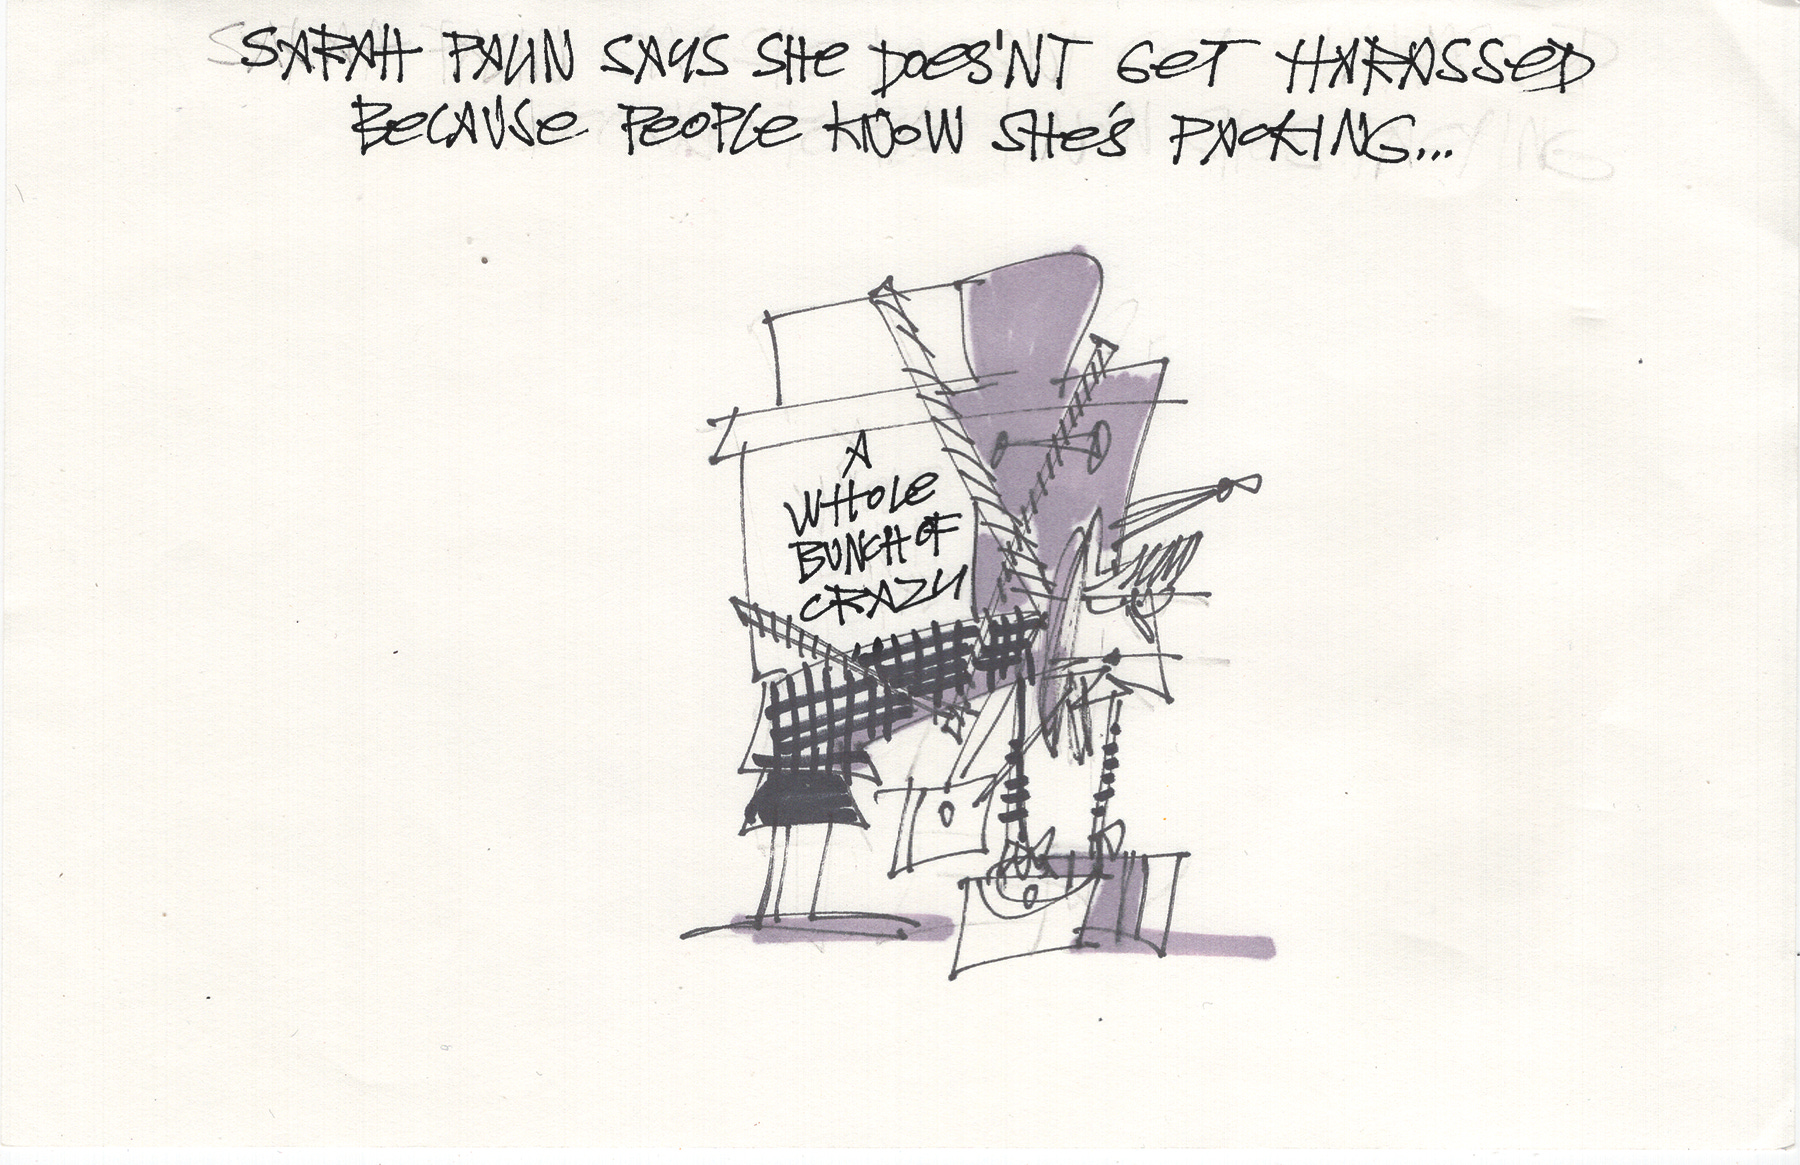 SARAH PALIN SAYS SHE DOES'NT GET HARASSED
BECAUSE PEOPLE KNOW SHE'S PACKING...
A
WHOLE
BUNCH OF
CRAZY